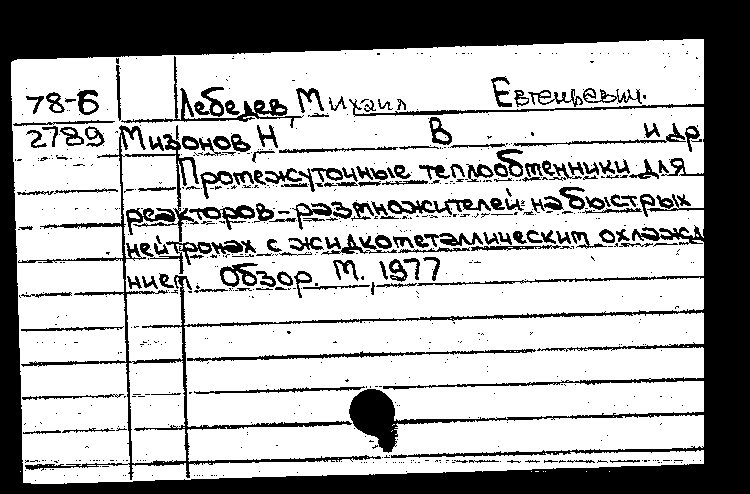 78-6 Лебедев, Михаил Евгеньевич.
2789 Мизонов, Н В и др
Промежуточные теплообменники для
реакторов-размножителей на быстрых
нейтронах с жидкометаллическим охлажд
нием. Обзор. М., 1977